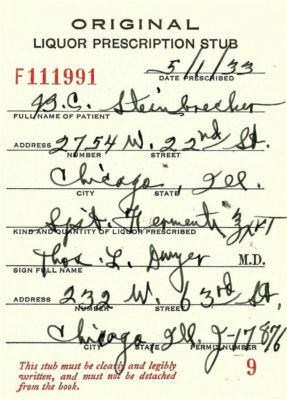 ORIGINAL
LIQUOR PRESCRIPTION STUB
F111991 5/1/33
DATE PRESCRIBED
B.C. Steinbrecher
FULL NAME OF PATIENT
ADDRESS 2754 W. 22nd St.
NUMBER STREET
Chicago, Ill.
CITY STATE
Spit. Frumenti
KIND AND QUANTITY OF LIQUOR PRESCRIBED
Thos. L. Dwyer M.D.
SIGN FULL NAME
ADDRESS 232 W. 63rd St.
NUMBER STREET
Chicago, Ill. J-17876
CITY STATE PERMIT NUMBER
This stub must be clearly and legibly
written, and must not be detached
from the book.
9